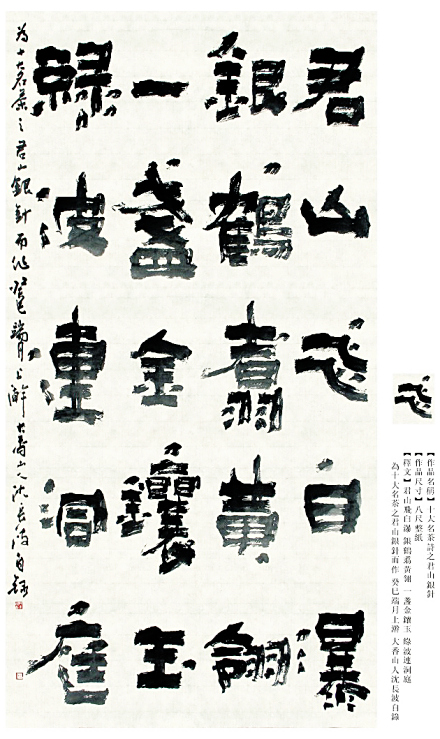 君山飛白瀑
銀鶴翥黃翎
一盞金鑲玉
綠波連洞庭
為十大名茶之君山銀針而作癸巳端月上澣大香山人沈長波自錄
飛
【作品名稱】十大名茶詩之君山銀針
【作品尺寸】八尺整紙
【釋文】君山飛白瀑 銀鶴翥黃翎 一盞金鑲玉 綠波連洞庭
為十大名茶之君山銀針而作 癸巳端月上澣 大香山人沈長波自錄